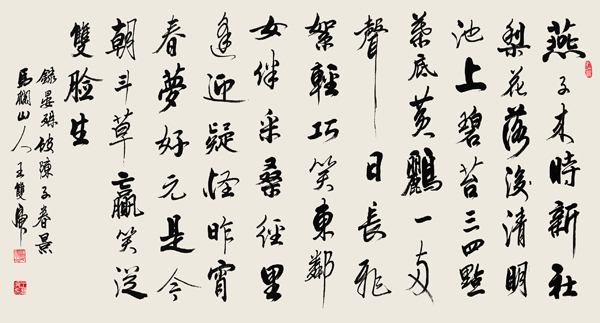 燕子来時新社
梨花落後清明
池上碧苔三四點
葉底黄鸝一两
聲日長飛
絮輕巧笑東鄰
女伴采桑徑里
逢迎疑怪昨宵
春夢好元是今
朝斗草贏笑從
雙脸生
錄晏殊破陳子春景
馬欄山人王雙